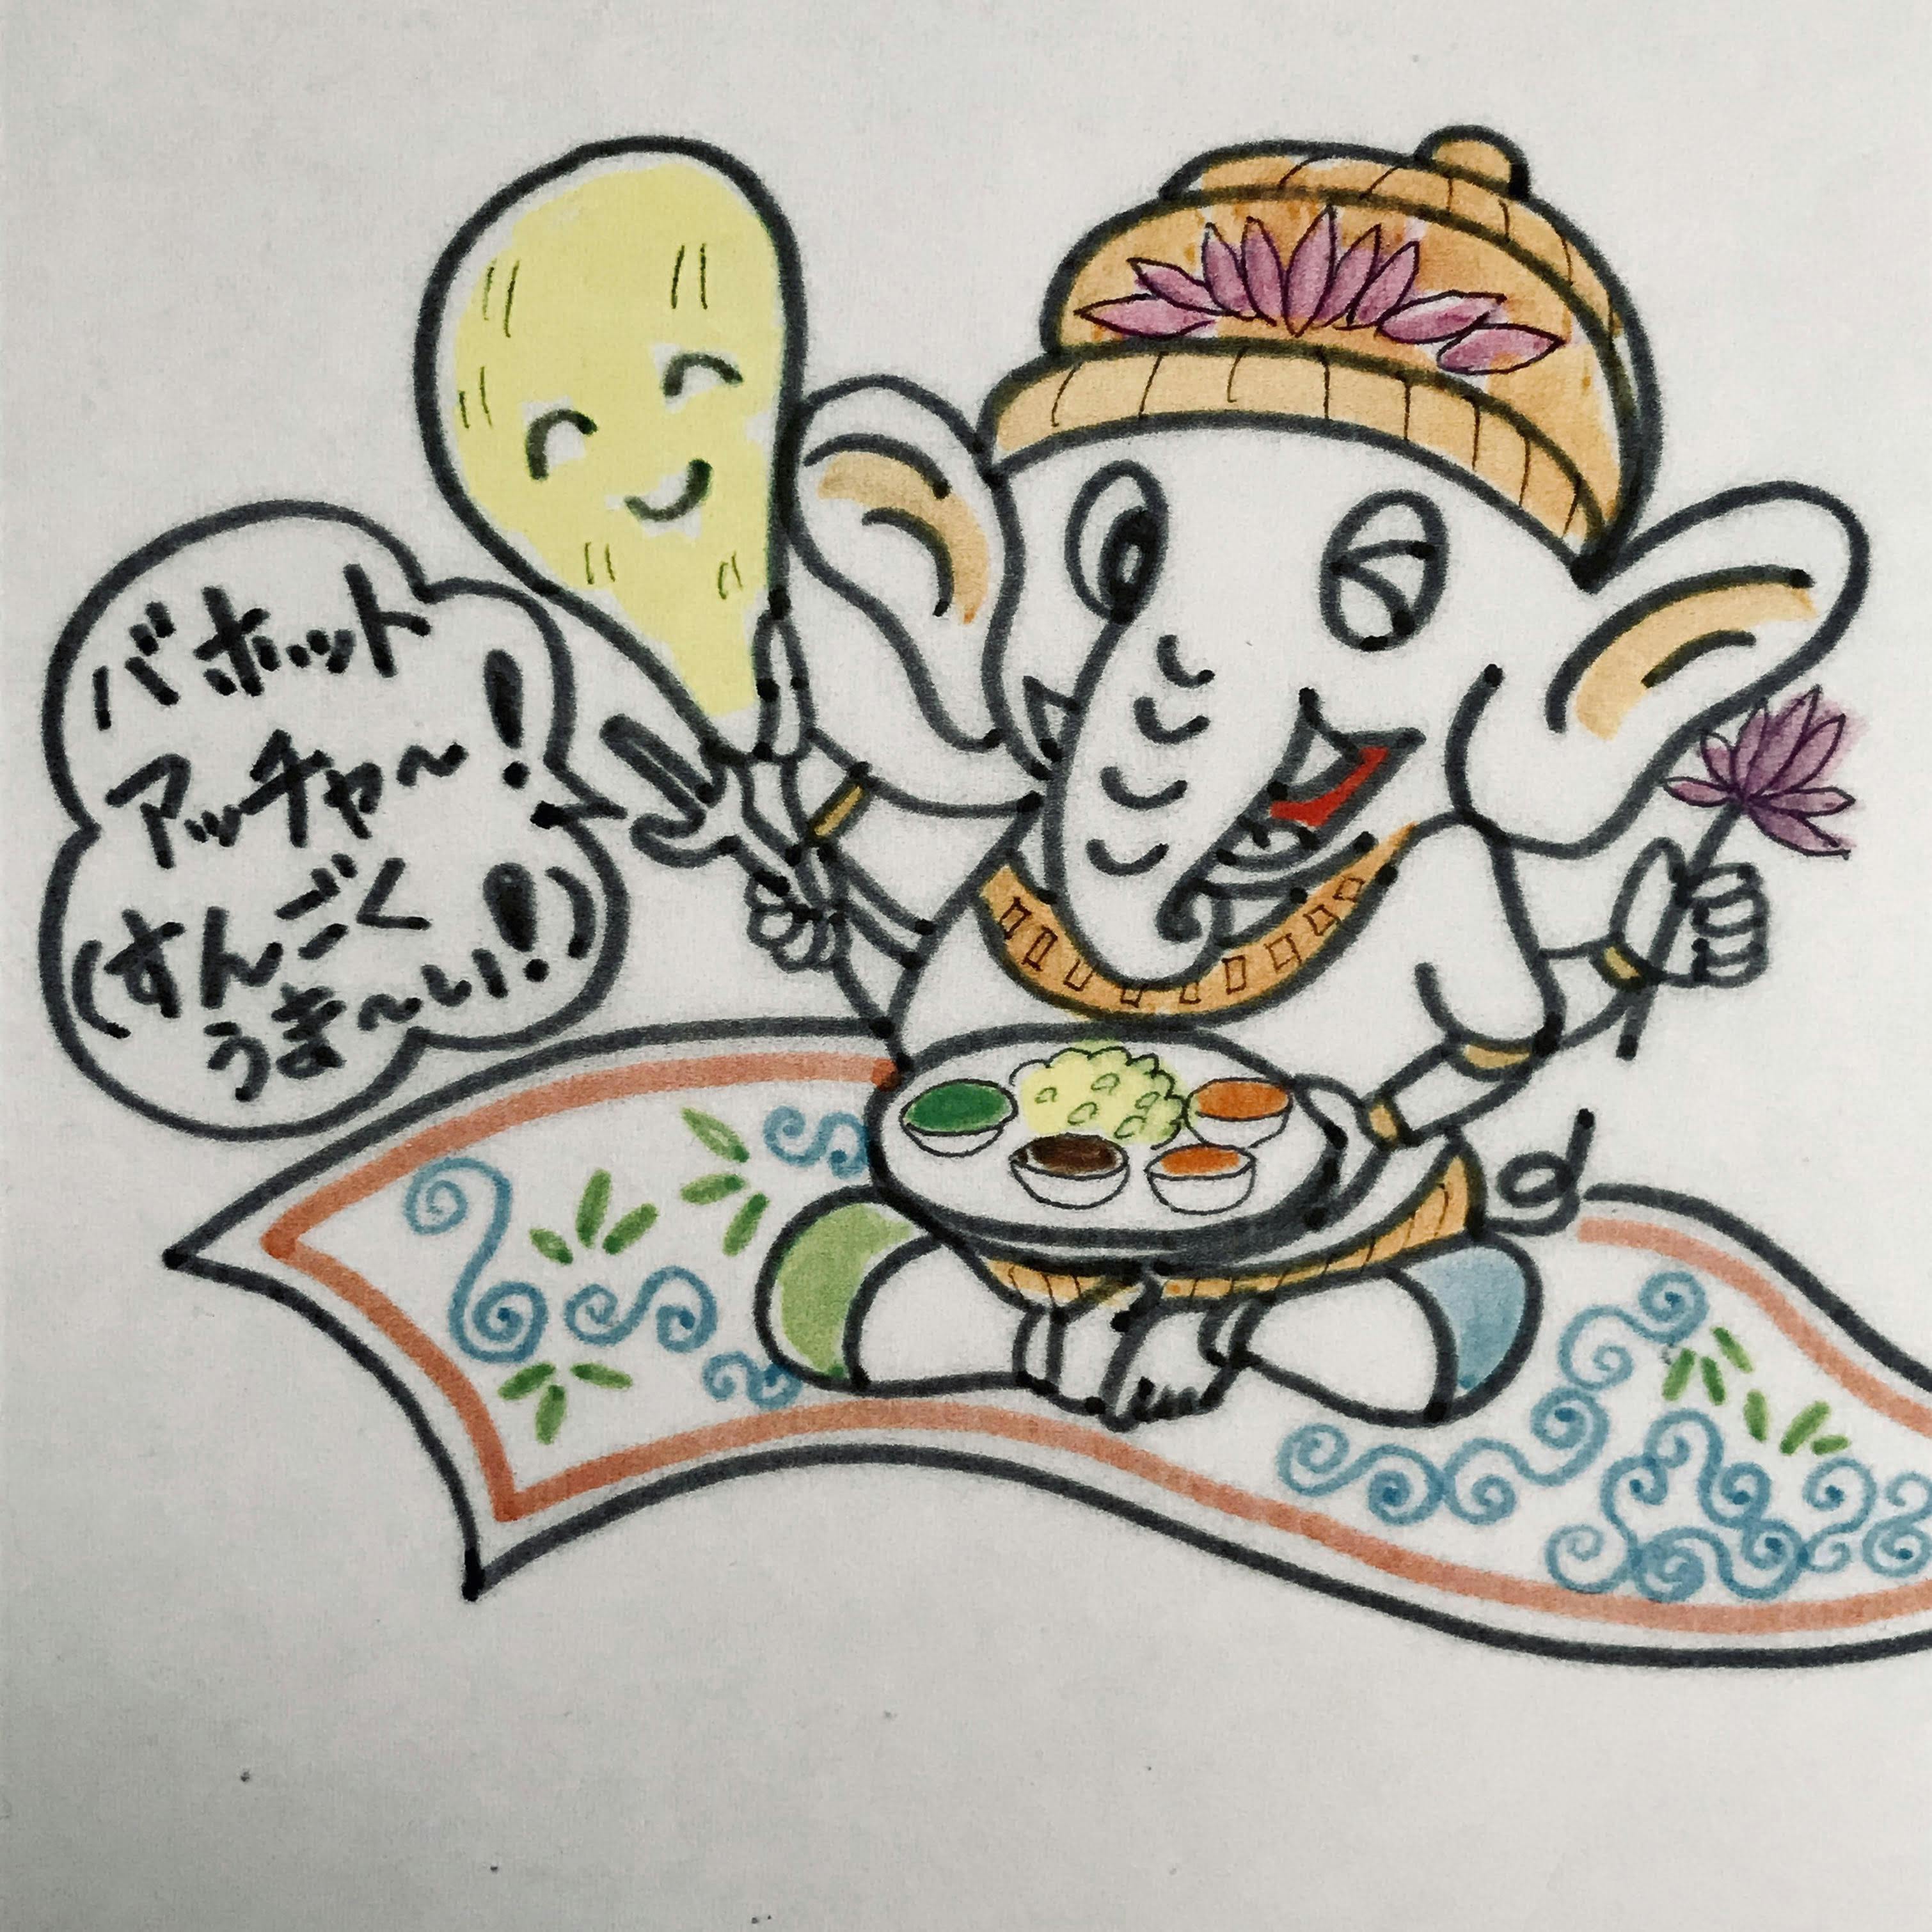 バホット
アッチャ〜!
(すんごく
うま〜い!)